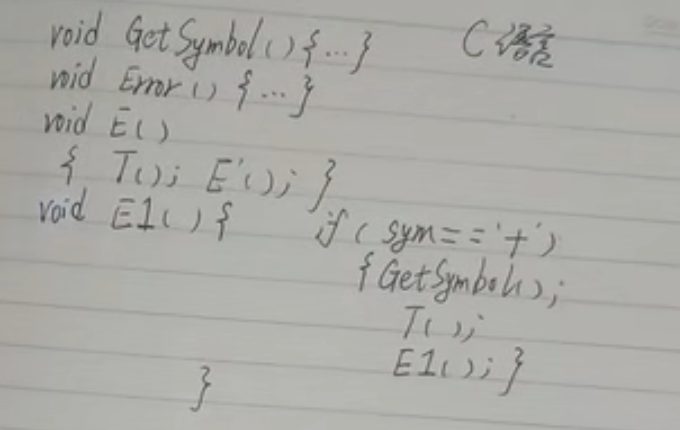 void GetSymbol(){...} C语言
void Error(){...}
void E()
{ T(); E'(); }
void E1(){ if(sym=='+')
{GetSymbol();
T();
E1();}
}